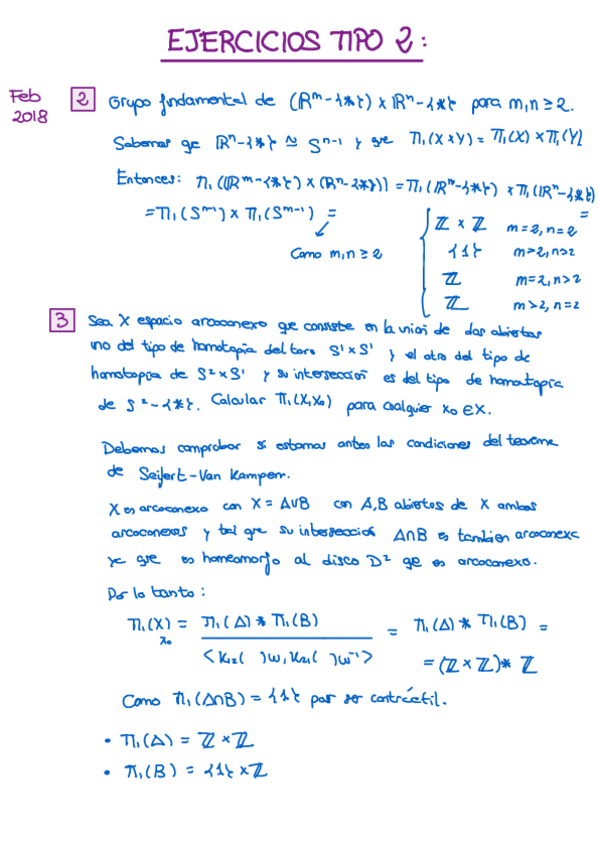 EJERCICIOS TIPO 2:
Feb 2018
2 Grupo fundamental de (ℝᵐ-{*}) x ℝⁿ-{*} para m,n ≥ 2.
Sabemos qe ℝⁿ-{*} ≃ Sⁿ⁻¹ y que π₁(X×Y) = π₁(X) × π₁(Y)
Entonces: π₁((ℝᵐ-{*}) × (ℝⁿ-{*})) = π₁(ℝᵐ-{*}) × π₁(ℝⁿ-{*}) =
= π₁(Sᵐ⁻¹) × π₁(Sᵐ⁻¹) =
Como m,n ≥ 2
ℤ × ℤ m=2, n=2
{1} m>2, n>2
ℤ m=2, n>2
ℤ m>2, n=2
3 Sea X espacio arcoconexo que consiste en la unión de dos abiertos
uno del tipo de homotopia del toro S¹×S¹ y el otro del tipo de
homotopia de S²×S¹ y su intersección es del tipo de homotopía
de S²-{*}. Calcular π₁(X,x₀) para cualquier x₀ ∈ X.
Debemos comprobar si estamos antes las condiciones del teorema
de Seifert-Van Kampen.
X es arcoconexo con X = A∪B con A,B abiertos de X ambos
arcoconexos y tal que su intersección A∩B es también arcoconexa
ya que es homeomorfo al disco D² qe es arcoconexo.
Por lo tanto:
π₁(X)ₓ₀ = π₁(A) * π₁(B) / <K₁₂( )ω, K₂₁( )ω⁻¹> = π₁(A) * π₁(B) =
= (ℤ × ℤ) * ℤ
Como π₁(A∩B) = {1} por ser contráctil.
• π₁(A) = ℤ × ℤ
• π₁(B) = {1} × ℤ